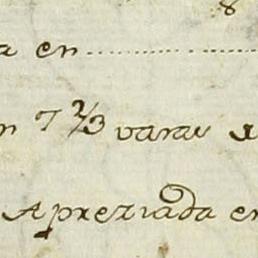 8
a en
n 7 2/3 varas
Apreziada en